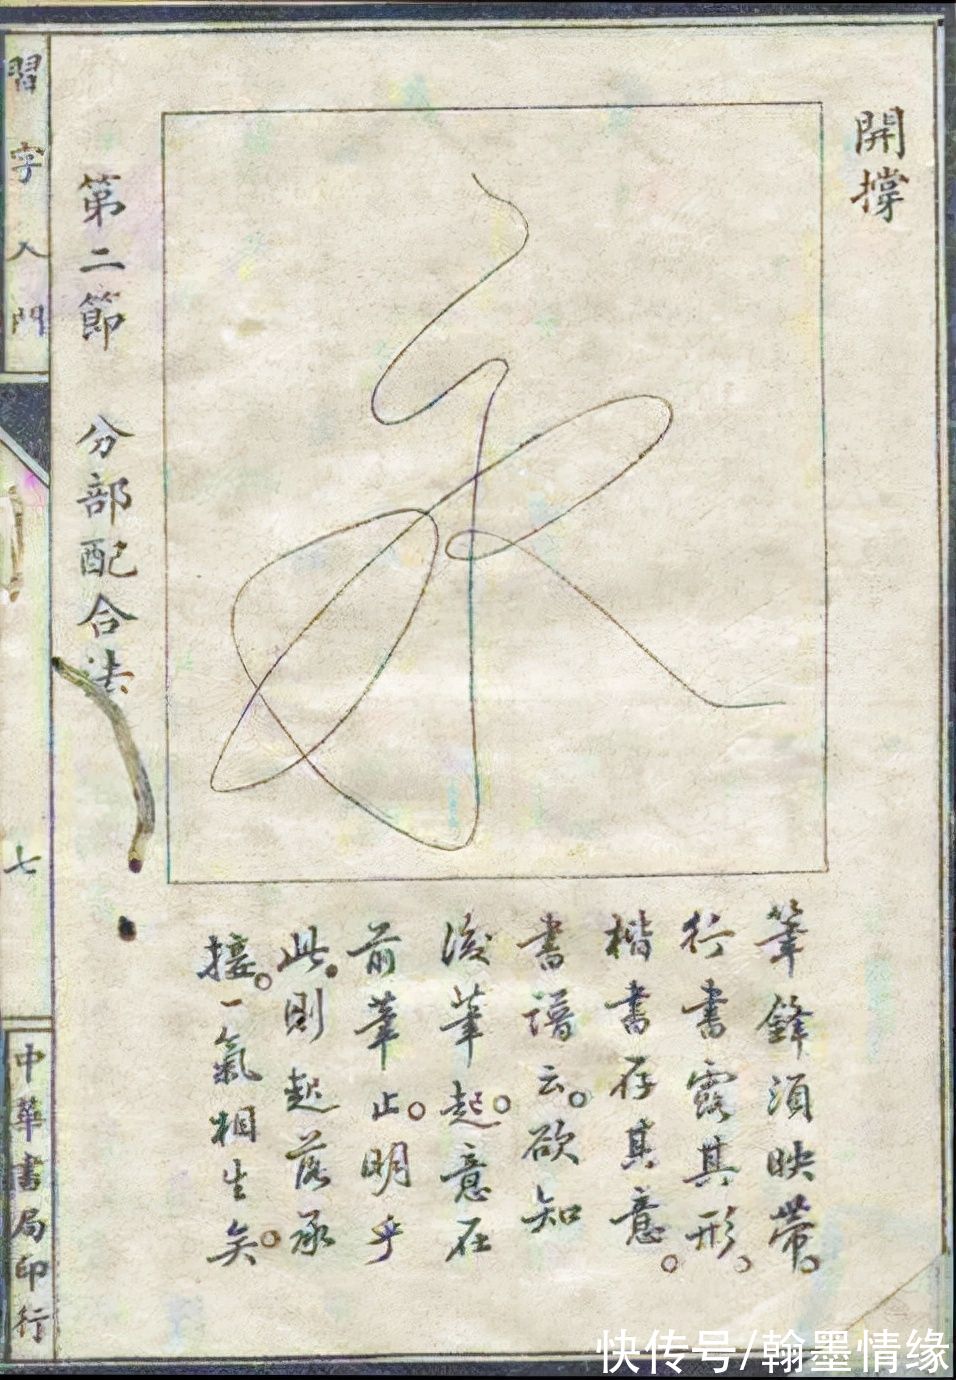 開撐
筆鋒須映帶。
行書露其形、
楷書存其意。
書譜云。欲知
後筆起。意在
前筆止。明乎
此。則起落承
接。一氣相生矣。
第二節 分部配合法
習字入門
七
中華書局印行
快传号/翰墨情缘